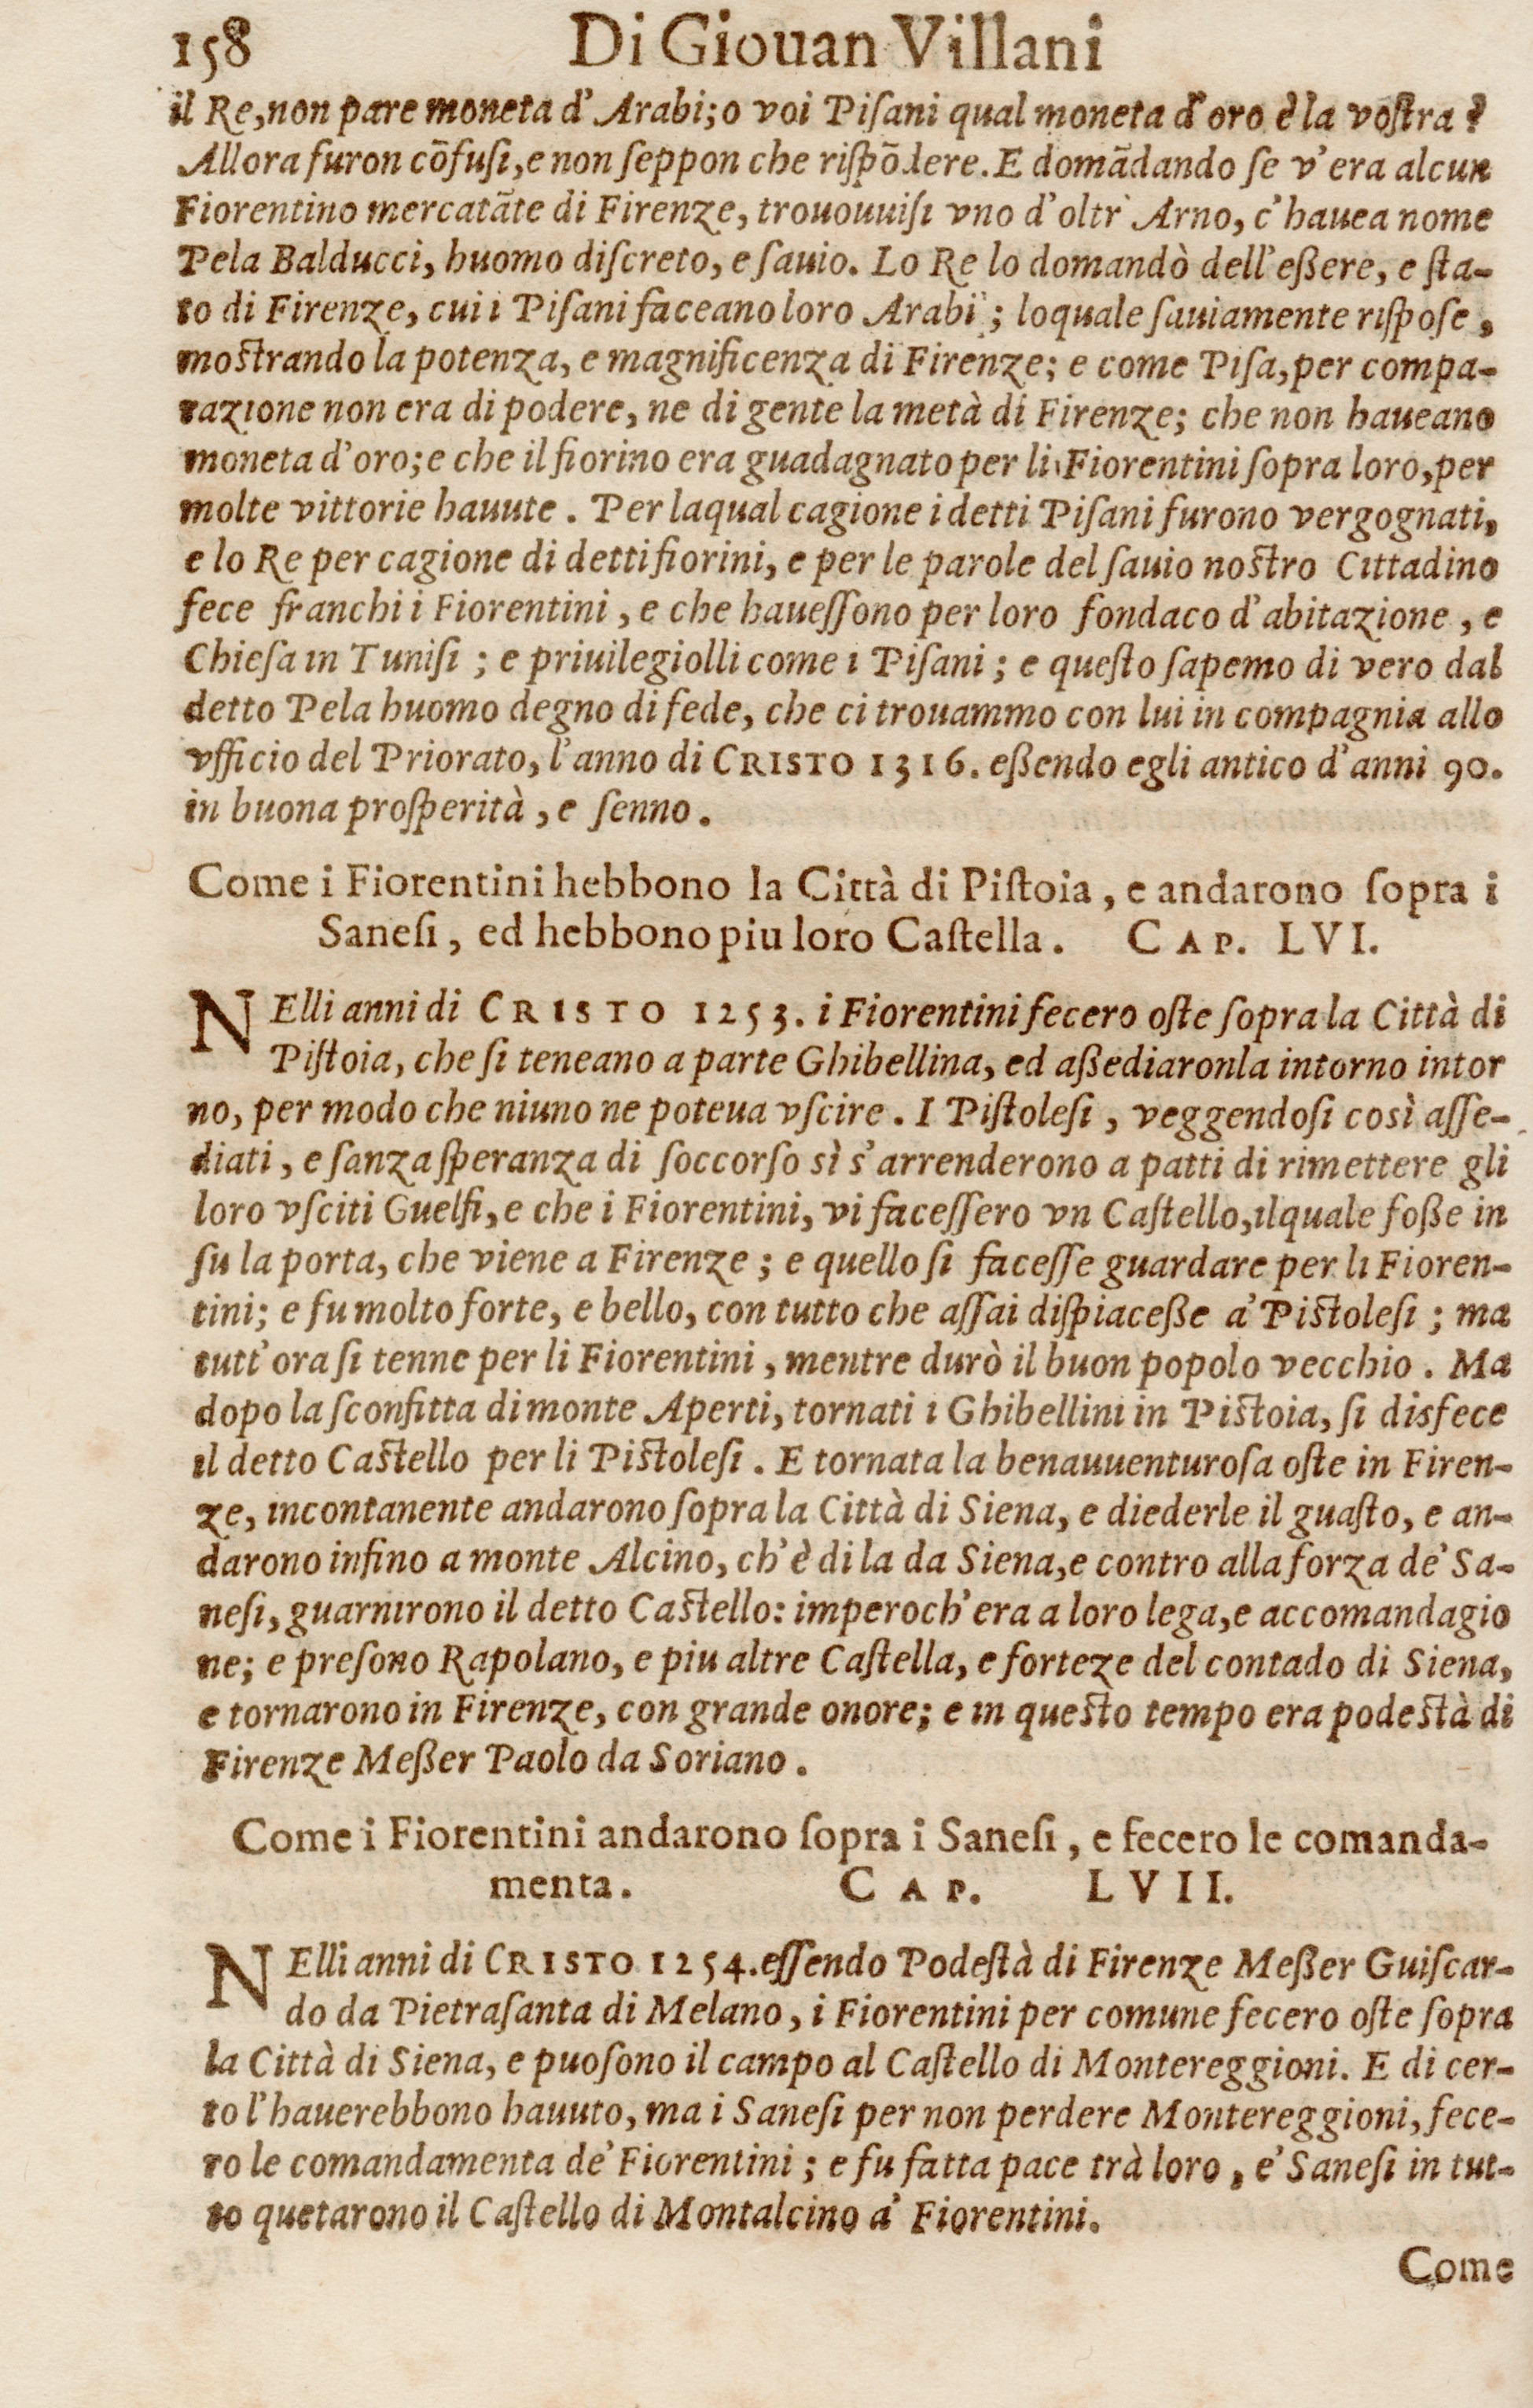 158 Di Giouan Villani
il Re, non pare moneta d' Arabi; o voi Piſani qual moneta d'oro è la voſtra?
Allora furon cõfuſi, e non ſeppon che riſpõdere. E domãdando ſe v'era alcun
Fiorentino mercatãte di Firenze, trououuiſi vno d'oltr' Arno, c'hauea nome
Pela Balducci, huomo diſcreto, e ſauio. Lo Re lo domandò dell'eßere, e ſta-
to di Firenze, cui i Piſani faceano loro Arabi; loquale ſauiamente riſpoſe,
moſtrando la potenza, e magnificenza di Firenze; e come Piſa, per compa-
razione non era di podere, ne di gente la metà di Firenze; che non haueano
moneta d'oro; e che il fiorino era guadagnato per li Fiorentini ſopra loro, per
molte vittorie hauute. Per laqual cagione i detti Piſani furono vergognati,
e lo Re per cagione di detti fiorini, e per le parole del ſauio noſtro Cittadino
fece franchi i Fiorentini, e che haueſſono per loro fondaco d'abitazione, e
Chieſa in Tuniſi; e priuilegiolli come i Piſani; e queſto ſapemo di vero dal
detto Pela huomo degno di fede, che ci trouammo con lui in compagnia allo
vfficio del Priorato, l'anno di CRISTO 1316. eßendo egli antico d'anni 90.
in buona proſperità, e ſenno.
Come i Fiorentini hebbono la Città di Piſtoia, e andarono ſopra i
Saneſi, ed hebbono piu loro Caſtella. CAP. LVI.
NElli anni di CRISTO 1253. i Fiorentini fecero oſte ſopra la Città di
Piſtoia, che ſi teneano a parte Ghibellina, ed aßediaronla intorno intor
no, per modo che niuno ne poteua vſcire. I Piſtoleſi, veggendoſi così aſſe-
diati, e ſanza ſperanza di ſoccorſo sì s'arrenderono a patti di rimettere gli
loro vſciti Guelfi, e che i Fiorentini, vi faceſſero vn Caſtello, ilquale foße in
ſu la porta, che viene a Firenze; e quello ſi faceſſe guardare per li Fioren-
tini; e fu molto forte, e bello, con tutto che aſſai diſpiaceße a' Piſtoleſi; ma
tutt'ora ſi tenne per li Fiorentini, mentre durò il buon popolo vecchio. Ma
dopo la ſconfitta di monte Aperti, tornati i Ghibellini in Piſtoia, ſi disfece
il detto Caſtello per li Piſtoleſi. E tornata la benauuenturoſa oſte in Firen-
ze, incontanente andarono ſopra la Città di Siena, e diederle il guaſto, e an-
darono infino a monte Alcino, ch'è di la da Siena, e contro alla forza de' Sa-
neſi, guarnirono il detto Caſtello: imperoch'era a loro lega, e accomandagio
ne; e preſono Rapolano, e piu altre Caſtella, e forteze del contado di Siena,
e tornarono in Firenze, con grande onore; e in queſto tempo era podeſtà di
Firenze Meßer Paolo da Soriano.
Come i Fiorentini andarono ſopra i Saneſi, e fecero le comanda-
menta. CAP. LVII.
NElli anni di CRISTO 1254. eſſendo Podeſtà di Firenze Meßer Guiſcar-
do da Pietraſanta di Melano, i Fiorentini per comune fecero oſte ſopra
la Città di Siena, e puoſono il campo al Caſtello di Montereggioni. E di cer-
to l'hauerebbono hauuto, ma i Saneſi per non perdere Montereggioni, fece-
ro le comandamenta de' Fiorentini; e fu fatta pace trà loro, e' Saneſi in tut-
to quetarono il Caſtello di Montalcino a' Fiorentini.
Come